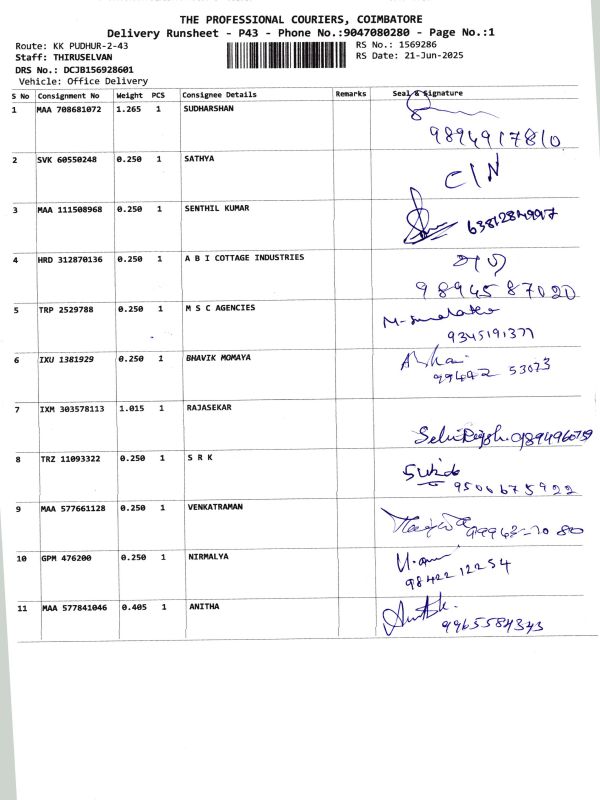 THE PROFESSIONAL COURIERS, COIMBATORE
Delivery Runsheet - P43 - Phone No.:9047080280 - Page No.:1
Route: KK PUDHUR-2-43
RS No.: 1569286
Staff: THIRUSELVAN
RS Date: 21-Jun-2025
DRS No.: DCJB156928601
Vehicle: Office Delivery
S No Consignment No Weight PCS Consignee Details Remarks Seal & Signature
1 MAA 708681072 1.265 1 SUDHARSHAN
9894917810
2 SVK 60550248 0.250 1 SATHYA
C/N
3 MAA 111508968 0.250 1 SENTHIL KUMAR
4 HRD 312870136 0.250 1 A B I COTTAGE INDUSTRIES
98945 87020
5 TRP 2529788 0.250 1 M S C AGENCIES
9345191377
6 IXU 1381929 0.250 1 BHAVIK MOMAYA
99442 53073
7 IXM 303578113 1.015 1 RAJASEKAR
8 TRZ 11093322 0.250 1 S R K
9500675922
9 MAA 577661128 0.250 1 VENKATRAMAN
10 GPM 476200 0.250 1 NIRMALYA
98422 12254
11 MAA 577841046 0.405 1 ANITHA
9965584343